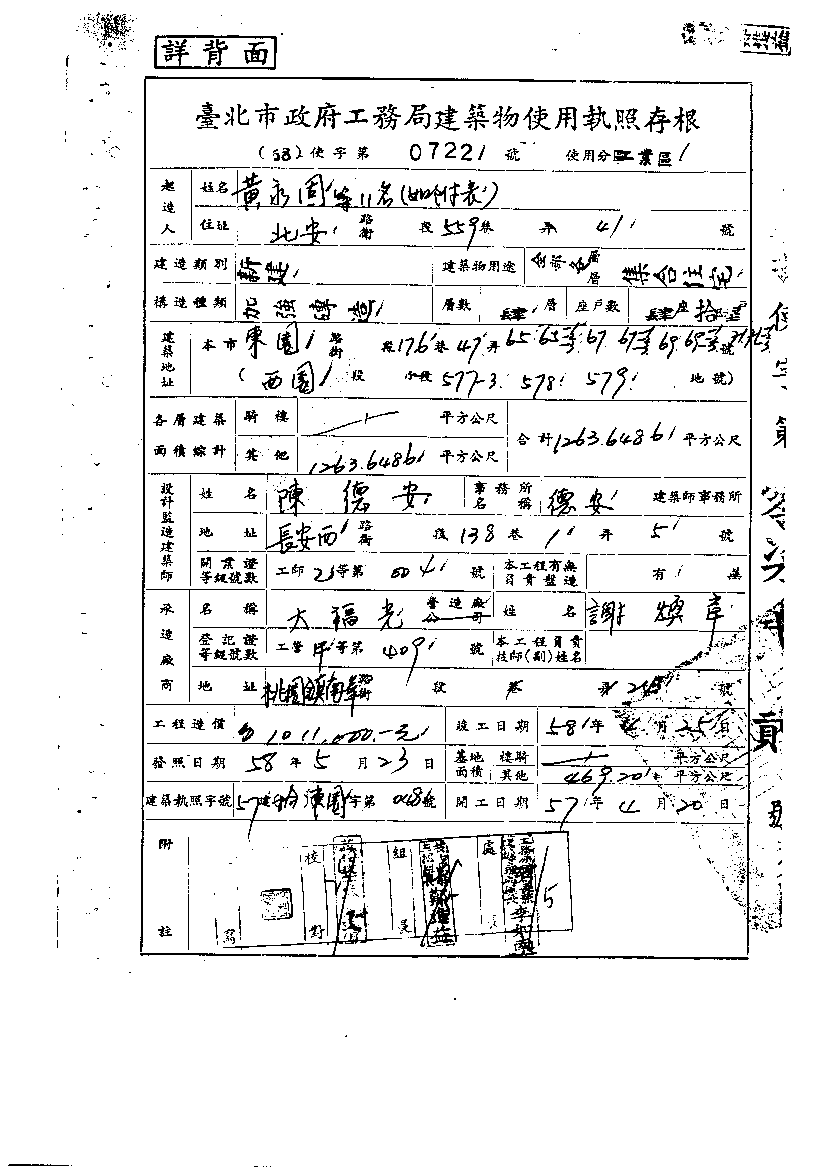 詳背面
臺北市政府工務局建築物使用執照存根
(58)使字第 07221 號 使用分區 工業區
起造人 姓名 黃永固等11名(如附表)
住址 北安 路街 段 559巷 弄 41 號
建造類別 新建 建築物用途 層層 集合住宅
構造種類 加強磚造 層數 肆 層 座戶數 肆座
建築地址 本市 東園 路街 段 176巷 47弄 65. 67. 69. 號
(西園 段 小段 577-3. 578. 579. 地號)
各層建築面積綜計 騎樓 平方公尺 合計 1263.6486 平方公尺
其他 1263.6486 平方公尺
設計監造建築師 姓名 陳德安 事務所名稱 德安 建築師事務所
地址 長安西 路街 段 138巷 1弄 5 號
開業證等級號數 工師 等第 號 本工程有無負責監造 有 無
承造廠商 名稱 大福光 營造廠公司 姓名 謝煥章
登記證等級號數 工營 甲等第 409 號 本工程負責技師(副)姓名
地址 桃園鎮南華 路街 段 巷 弄 號
工程造價 1011,000.-元 竣工日期 58年 4月 25日
發照日期 58年 5月 23日 基地面積 樓騎 平方公尺
其他 469.20 平方公尺
建築執照字號 字第 號 開工日期 57年 4月 20日
附註 校對 組長 處長
使字第
貳
號